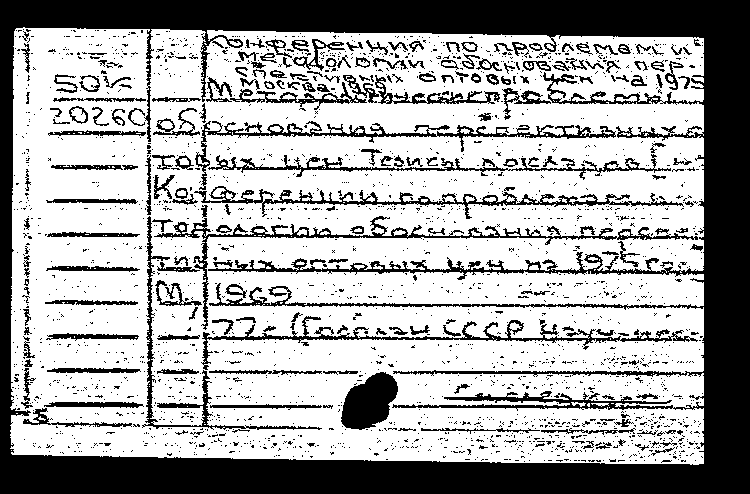 Конференция по проблемам и
методологии обоснования пер-
спективных оптовых цен на 1975
Москва. 1969
50к Методологические проблемы
20260 обоснования перспективных о
товых цен Тезисы докладов
Конференции по проблемам
тодологии обоснования перспек
тивных оптовых цен на 1975 г.
М, 1969
77с (Госплан СССР Науч-исс-